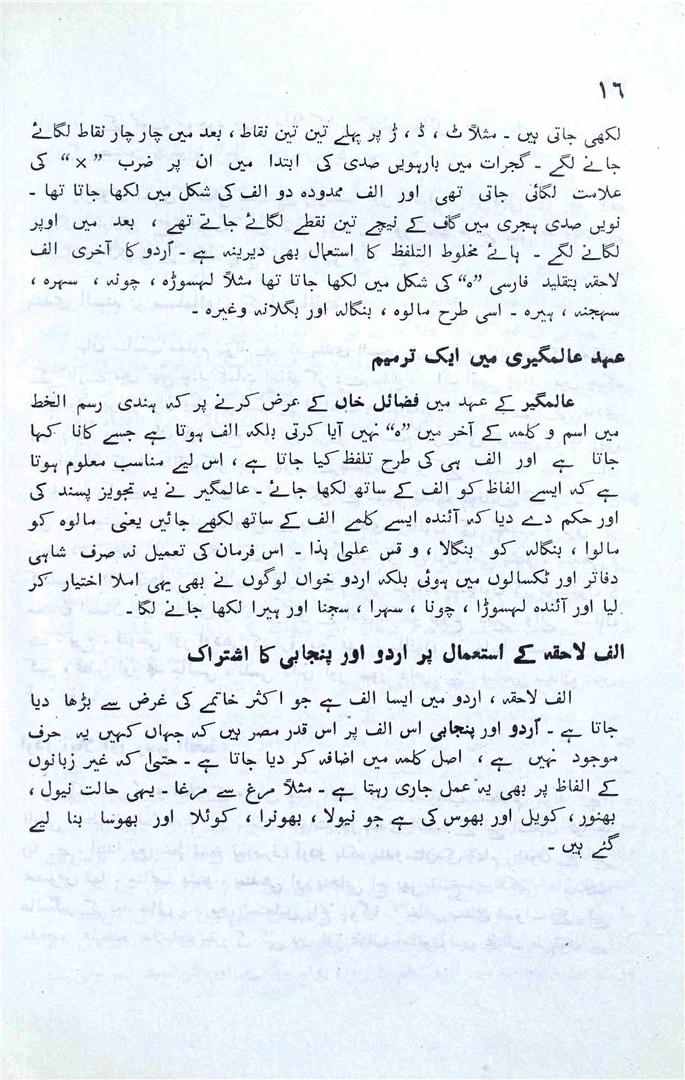 ١٦
لکھی جاتی ہیں ۔ مثلاً ٹ ، ڈ ، ڑ پر پہلے تین تین نقاط ، بعد میں چار چار نقاط لگائے
جانے لگے ۔ گجرات میں بارہویں صدی کی ابتدا میں ان پر ضرب ”×“ کی
علامت لگائی جاتی تھی اور الف ممدودہ دو الف کی شکل میں لکھا جاتا تھا ۔
نویں صدی ہجری میں گاف کے نیچے تین نقطے لگائے جاتے تھے ، بعد میں اوپر
لگانے لگے ۔ ہائے مخلوط التلفظ کا استعمال بھی دیرینہ ہے ۔ اُردو کا آخری الف
لاحقہ بتقلید فارسی ”ہ“ کی شکل میں لکھا جاتا تھا مثلاً لہسوڑہ ، چونہ ، سہرہ ،
سہجنہ ، ہیرہ ۔ اسی طرح مالوہ ، بنگالہ اور بگلانہ وغیرہ ۔
عہد عالمگیری میں ایک ترمیم
عالمگیر کے عہد میں فضائل خاں کے عرض کرنے پر کہ ہندی رسم الخط
میں اسم و کلمہ کے آخر میں ”ہ“ نہیں آیا کرتی بلکہ الف ہوتا ہے جسے کانا کہا
جاتا ہے اور الف ہی کی طرح تلفظ کیا جاتا ہے ، اس لیے مناسب معلوم ہوتا
ہے کہ ایسے الفاظ کو الف کے ساتھ لکھا جائے ۔ عالمگیر نے یہ تجویز پسند کی
اور حکم دے دیا کہ آئندہ ایسے کلمے الف کے ساتھ لکھے جائیں یعنی مالوہ کو
مالوا ، بنگالہ کو بنگالا ، و قس علیٰ ہذا ۔ اس فرمان کی تعمیل نہ صرف شاہی
دفاتر اور ٹکسالوں میں ہوئی بلکہ اردو خواں لوگوں نے بھی یہی املا اختیار کر
لیا اور آئندہ لہسوڑا ، چونا ، سہرا ، سجنا اور ہیرا لکھا جانے لگا ۔
الف لاحقہ کے استعمال پر اردو اور پنجابی کا اشتراک
الف لاحقہ ، اردو میں ایسا الف ہے جو اکثر خاتمے کی غرض سے بڑھا دیا
جاتا ہے ۔ اُردو اور پنجابی اس الف پر اس قدر مصر ہیں کہ جہاں کہیں یہ حرف
موجود نہیں ہے ، اصل کلمہ میں اضافہ کر دیا جاتا ہے ۔ حتیٰ کہ غیر زبانوں
کے الفاظ پر بھی یہ عمل جاری رہتا ہے ۔ مثلاً مرغ سے مرغا ۔ یہی حالت نیول ،
بھنور ، کویل اور بھوس کی ہے جو نیولا ، بھونرا ، کوئلا اور بھوسا بنا لیے
گئے ہیں ۔